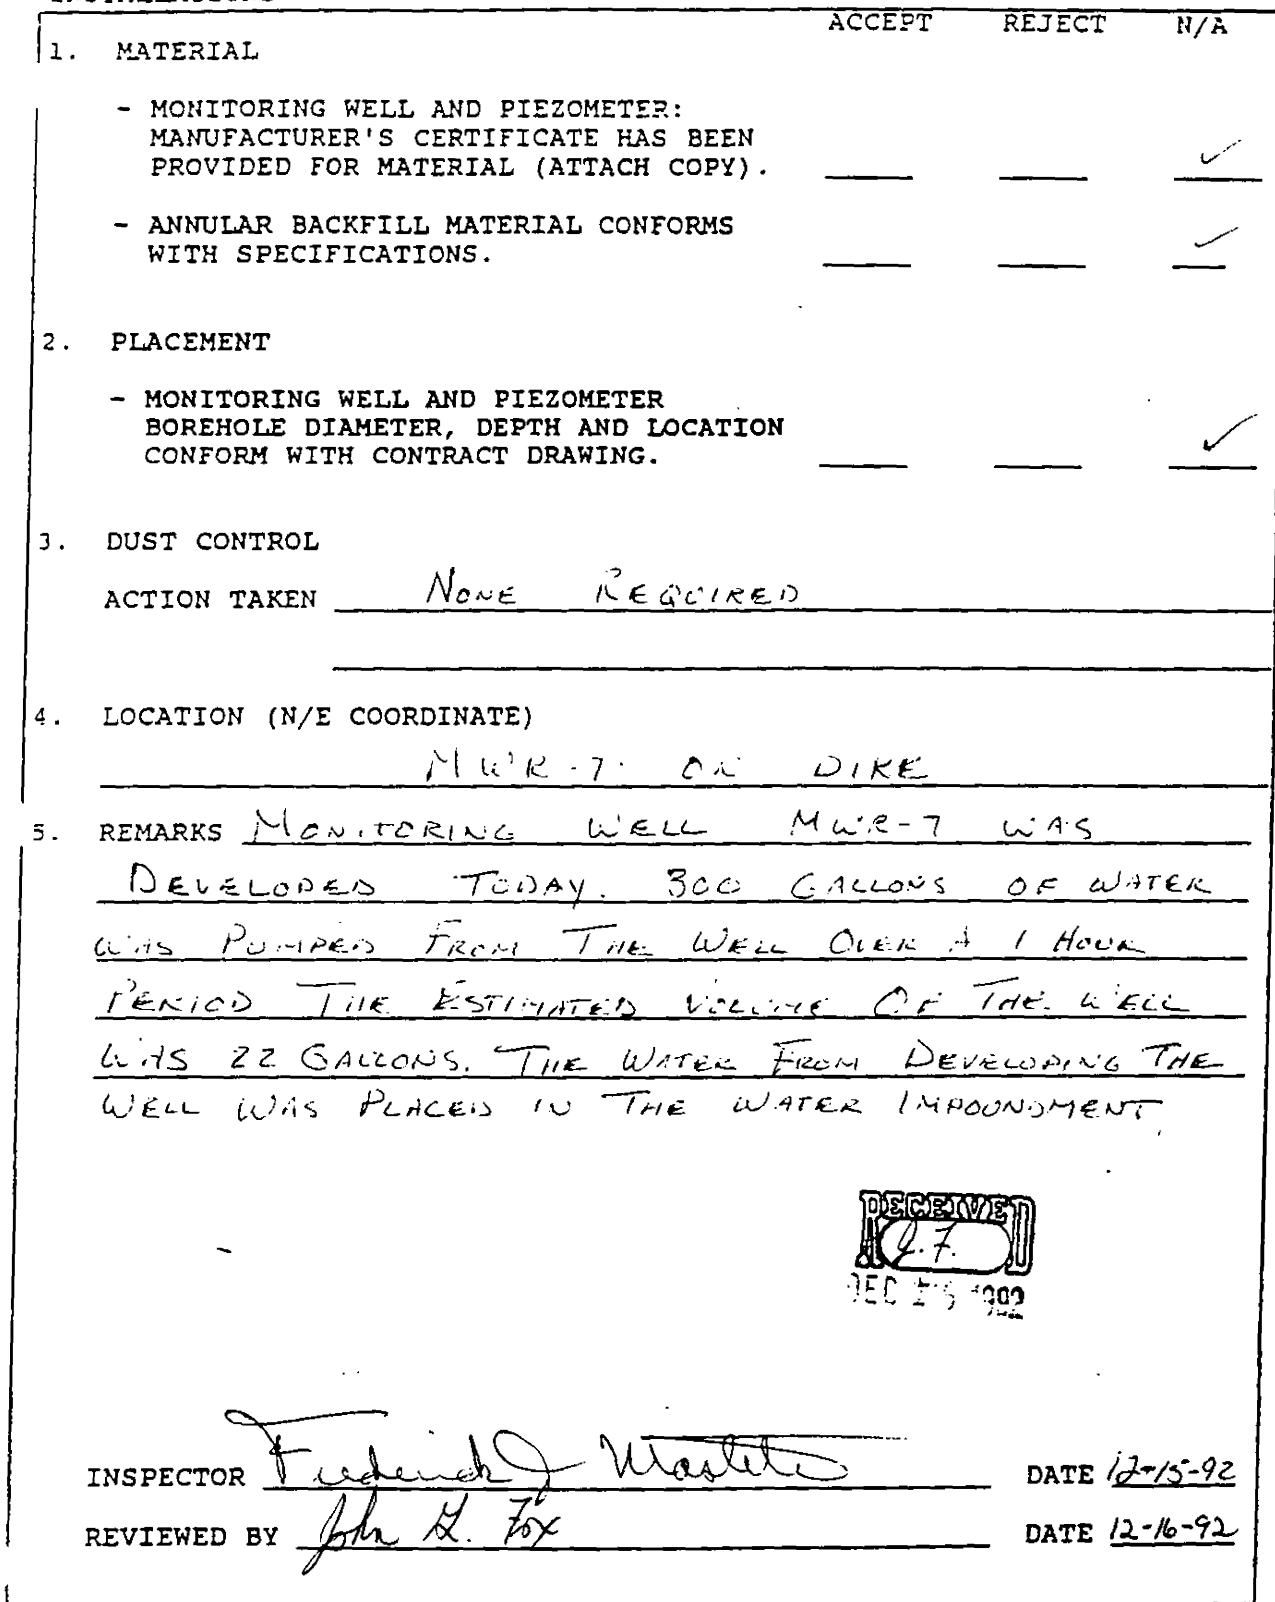 ACCEPT REJECT N/A
1. MATERIAL
- MONITORING WELL AND PIEZOMETER:
MANUFACTURER'S CERTIFICATE HAS BEEN
PROVIDED FOR MATERIAL (ATTACH COPY). ✓
- ANNULAR BACKFILL MATERIAL CONFORMS
WITH SPECIFICATIONS. ✓
2. PLACEMENT
- MONITORING WELL AND PIEZOMETER
BOREHOLE DIAMETER, DEPTH AND LOCATION
CONFORM WITH CONTRACT DRAWING. ✓
3. DUST CONTROL
ACTION TAKEN NONE REQUIRED
4. LOCATION (N/E COORDINATE)
MWR-7 ON DIKE
5. REMARKS MONITORING WELL MWR-7 WAS
DEVELOPED TODAY. 300 GALLONS OF WATER
WAS PUMPED FROM THE WELL OVER A 1 HOUR
PERIOD THE ESTIMATED VOLUME OF THE WELL
WAS 22 GALLONS. THE WATER FROM DEVELOPING THE
WELL WAS PLACED IN THE WATER IMPOUNDMENT.
RECEIVED
J.F.
DEC 1992
INSPECTOR Frederick J DATE 12-15-92
REVIEWED BY John G. Fox DATE 12-16-92